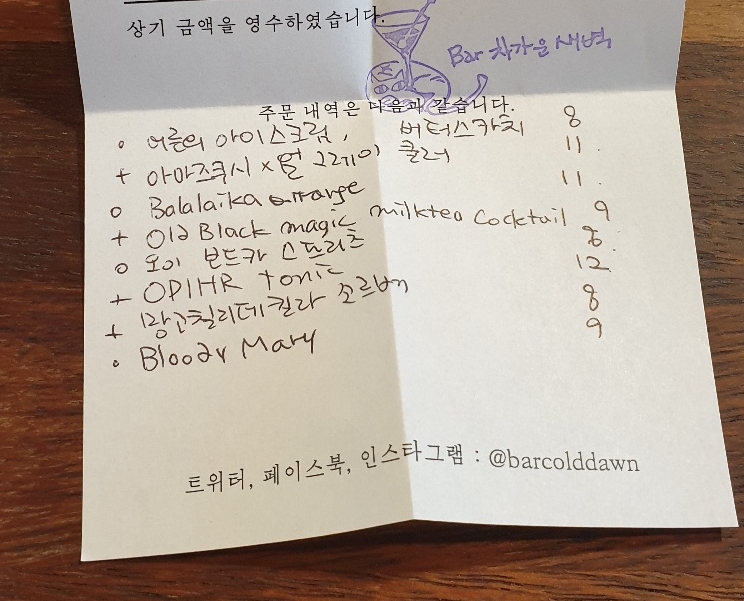 상기 금액을 영수하였습니다.
Bar 차가운 새벽
주문 내역은 다음과 같습니다.
o 어른의 아이스크림, 버터스카치 8
+ 아마즈쿠시 x 얼 그레이 쿨러 11.
o Balalaika arrange 11.
+ Old Black magic milktea cocktail 9
o 오이 보드카 스프리츠 8
+ OPIHR tonic 12
+ 망고칠리데킬라 소르벳 8
o Bloody Mary 9
트위터, 페이스북, 인스타그램 : @barcolddawn